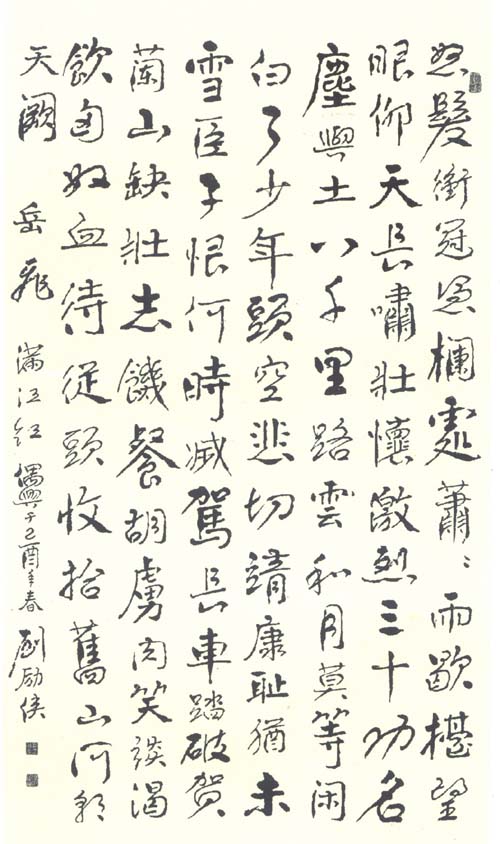 怒髮衝冠憑欄處蕭〻雨歇擡望
眼仰天長嘯壯懷激烈三十功名
塵與土八千里路雲和月莫等闲
白了少年頭空悲切靖康恥猶未
雪臣子恨何時滅駕長車踏破賀
蘭山缺壯志饑餐胡虜肉笑談渴
飲匈奴血待從頭收拾舊山河朝
天闕 岳飛 滿江紅 偶興于己酉年春 劉励俠